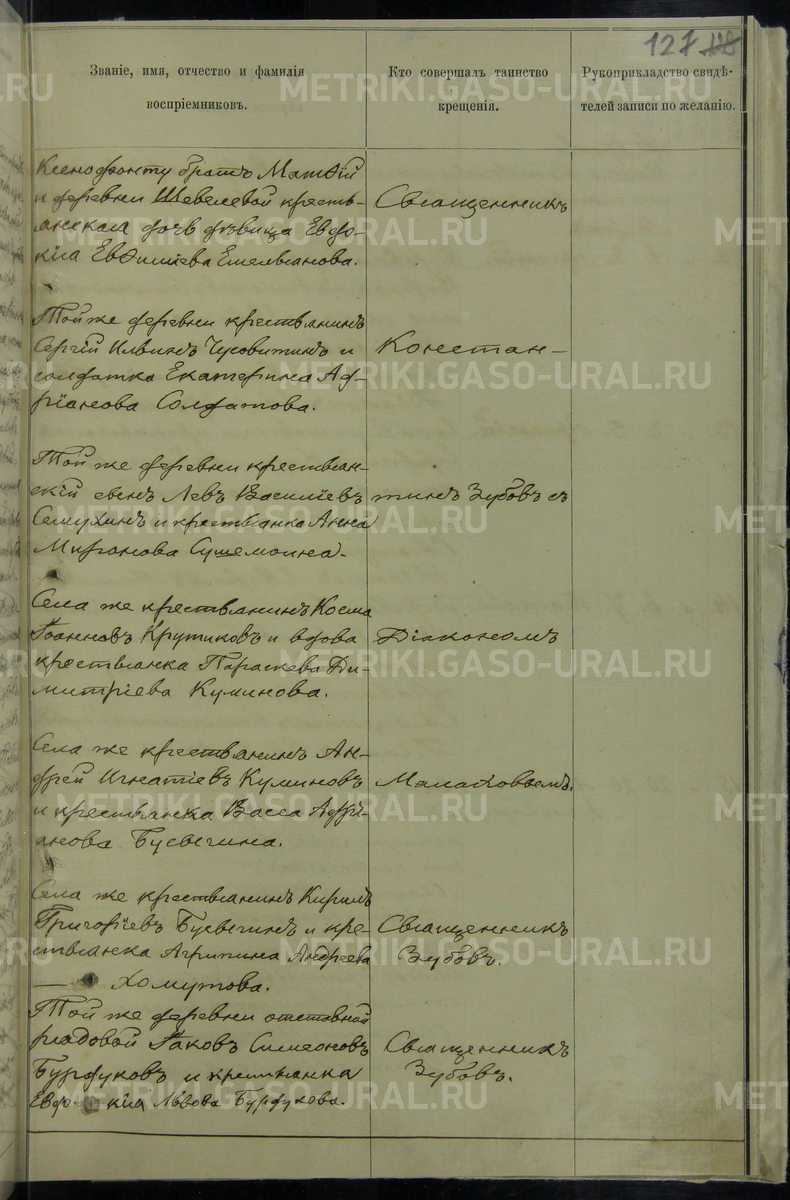 127
Званіе, имя, отчество и фамилія
воспріемниковъ.
Кто совершалъ таинство
крещенія.
Рукоприкладство свидѣ-
телей записи по желанію.
Ксенофонту братъ Матѳій
и деревни Шевелевой кресть-
янская дочь дѣвица Евдо-
кія Евѳиміева Емельянова.
Той же деревни крестьянинъ
Сергій Ильинъ Чусовитинъ и
солдатка Екатерина Ад-
ріанова Солдатова.
Той же деревни крестьян-
скій сынъ Левъ Василіевъ
Семухинъ и крестьянка Анна
Миронова
Села же крестьянинъ Косма
Іоанновъ Крутиковъ и вдова
крестьянка Параскева Ди-
митріева Куминова.
Села же крестьянинъ Ан-
дрей Игнатіевъ Куминовъ
и крестьянка Васса Адрі-
анова Бусыгина.
Села же крестьянинъ Кирилъ
Григоріевъ Бусыгинъ и кре-
стьянка Агрипина Андреева
Хомутова.
Той же деревни отставной
рядовой Іаковъ Симеоновъ
Бурдуковъ и крестьянка
Евдокія Львова Бурдукова.
Священникъ
Констан-
тинъ Зубовъ съ
Діакономъ
Малаховымъ.
Священникъ
Зубовъ.
Священникъ
Зубовъ.
METRIKI.GASO-URAL.RU